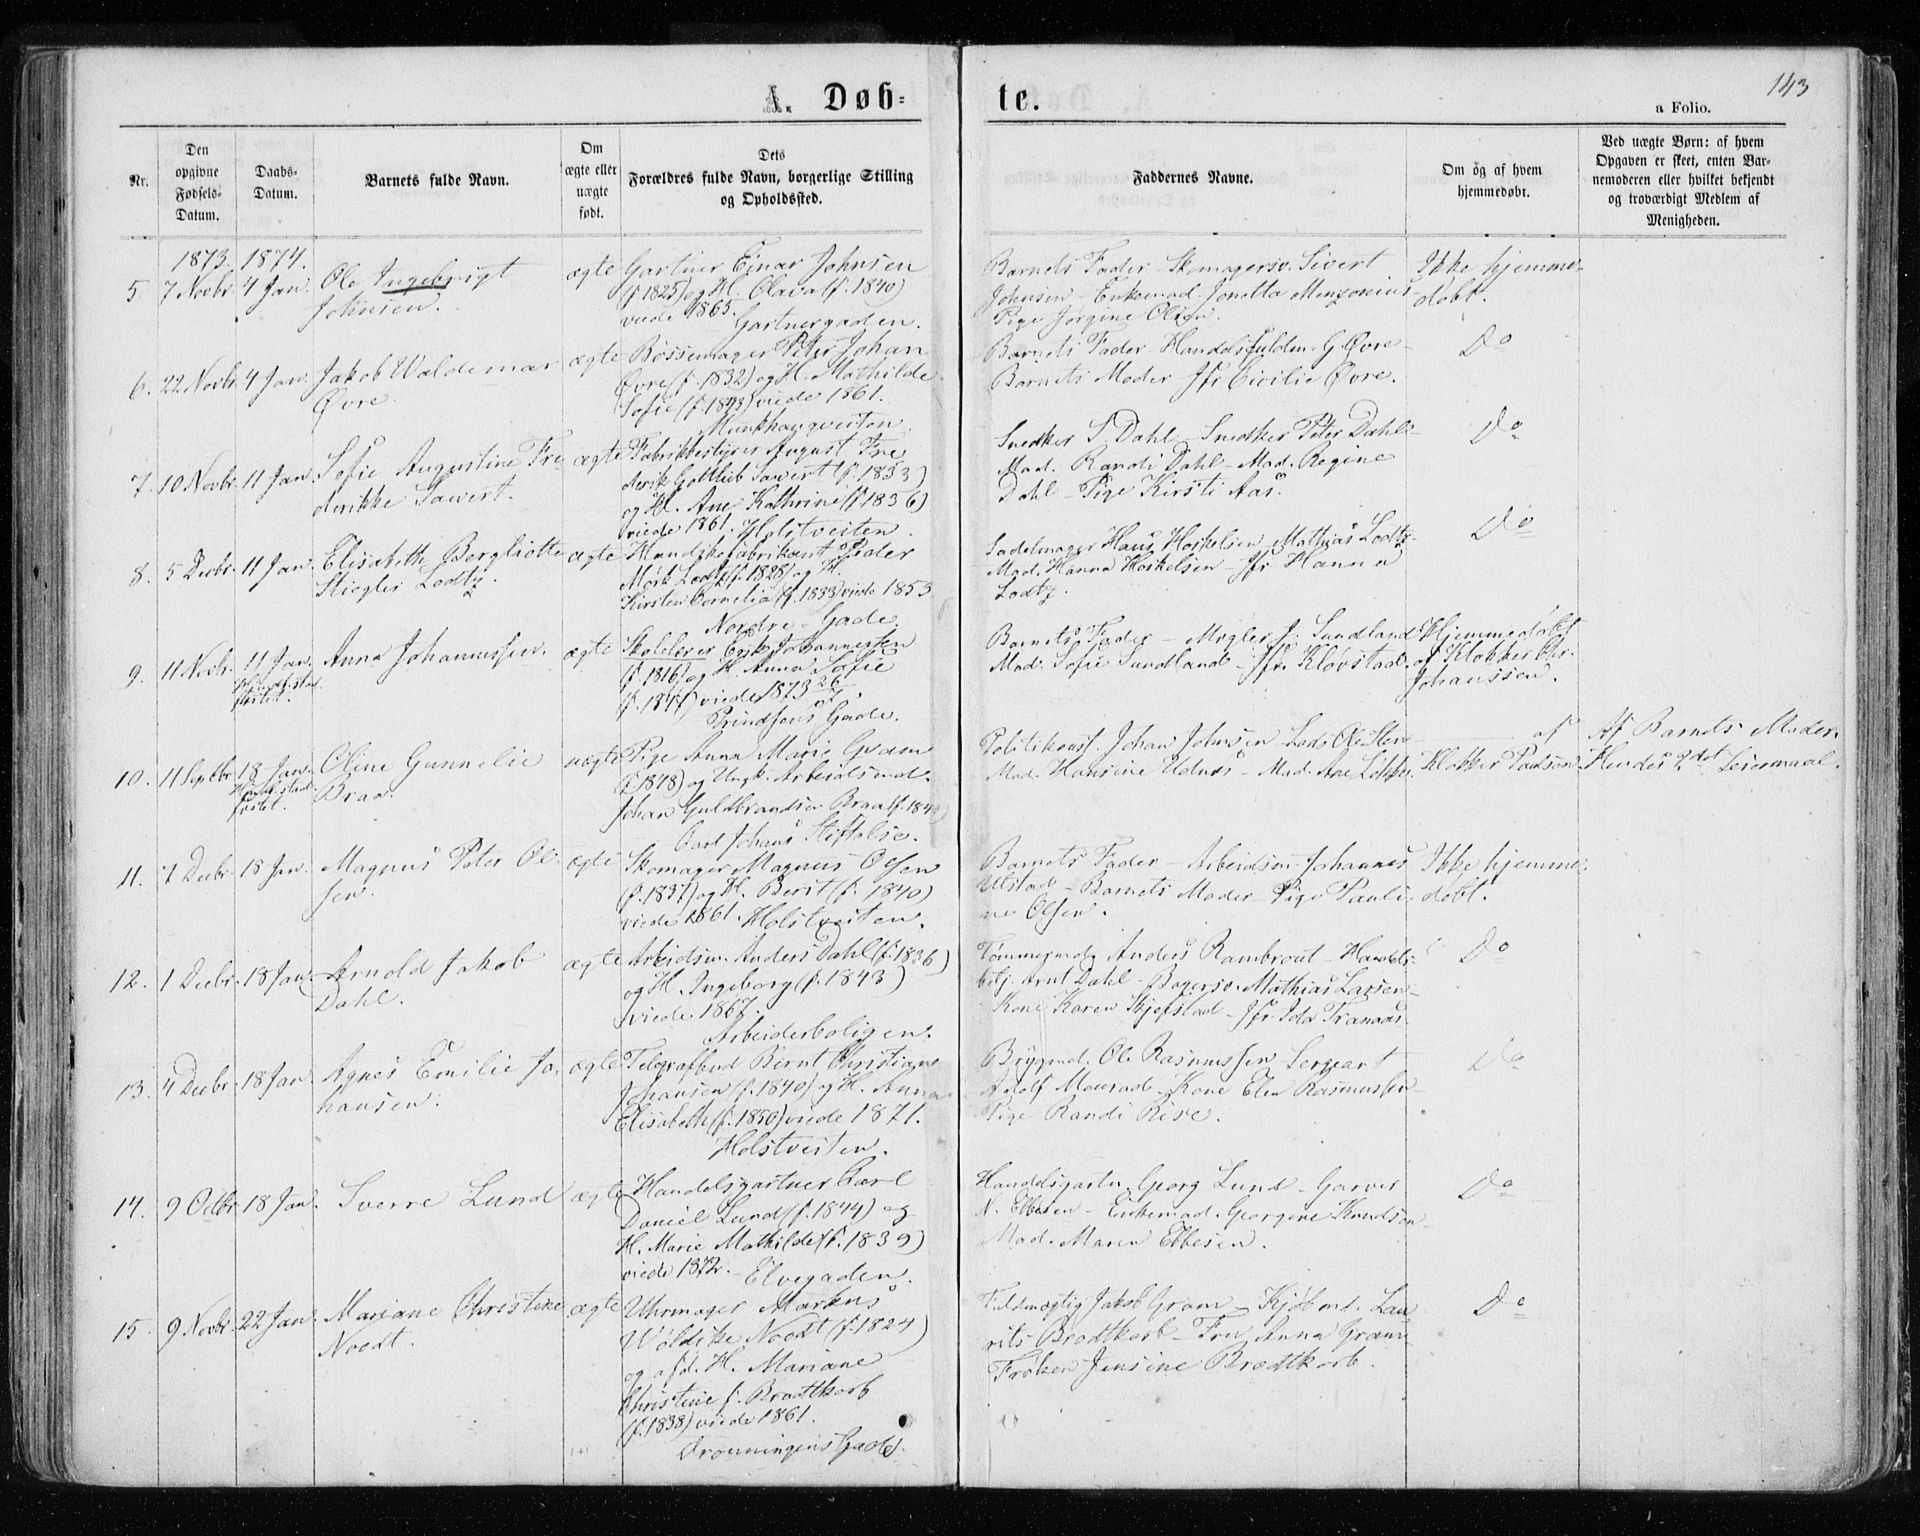 143
A. Døb=
te.
a Folio.
Nr.
Den
opgivne
Fødsels-
Datum.
Daabs-
Datum.
Barnets fulde Navn.
Om
ægte eller
uægte
født.
Dets
Forældres fulde Navn, borgerlige Stilling
og Opholdssted.
Faddernes Navne.
Om og af hvem
hjemmedøbt.
Ved uægte Børn: af hvem
Opgaven er skeet, enten Bar-
nemoderen eller hvilket bekjendt
og troværdigt Medlem af
Menigheden.
1873. 1874.
5 7 Novbr. 4 Jan. Ole Ingebrigt
Johnsen.
ægte
Gartner Einar Johnsen
(f. 1825) og H. Olava (f. 1840)
viede 1865.
Gartnergaden.
Barnets Fader - Skomagersv. Sivert
Johnsen - Enkemad. Jonetta Menzonius -
Pige Jørgine Olsen.
Ikke hjemme-
døbt.
6. 22 Novbr. 4 Jan. Jakob Waldemar
Øvre.
ægte
Bøssemager Peter Johan
Øvre (f. 1832) og H. Mathilde
Sofie (f. 1843) viede 1861.
Munkhaugveiten.
Barnets Fader - Handelsfuldm. G. Øvre -
Barnets Moder Jfr Cicilie Øvre.
Do
7. 10 Novbr. 11 Jan. Sofie Augustine Fre
derikke Sawert.
ægte
Fabrikbestyrer August Fre
derik Gottlieb Sawert (f. 1833)
og H. Ane Kathrine (f 1836)
viede 1861. Holstveiten.
Snedker S Dahl - Snedker Peter Dahl -
Mad. Randi Dahl - Mad. Regine
Dahl - Pige Kirsti Aas.
Do
8. 5 Decbr. 11 Jan. Elisabeth Bergliotte
Stiegler Lodtz.
ægte
Handskefabrikant Peder
Mørk Lodtz (f. 1828) og H.
Kirsten Cornelia (f. 1833) viede 1853
Nordre - Gade.
Sadelmager Hans Hoskelsen Mathias Lodtz -
Mad. Hanna Hoskelsen - Jfr Hanna
Lodtz.
Do
9. 11 Novbr. 11 Jan.
Anna Johannessen.
ægte
Skolelærer Johannessen
(f. 1816) og H. Anna Sofie
(f. 1847) viede 1873 26/
Prindsens Gade.
Barnets Fader - Mægler J. Sundland
Mad. Sofie Sundland - Jfr. Kløvstad.
Hjemmedøbt
af Klokker Chr.
Johanssen.
10. 11 Septbr. 18 Jan.
Oline Gunnelie
Braa.
uægte
Pige Anna Marie Gram
(f. 1848) og Ungk. Arbeidsmd.
Johan Guldbrandsen Braa (f. 184
Carl Johans Stiftelse.
Politikonst. Johan Johnsen - Lods Ole Sten
Mad. Hansine Udnes - Mad. Ane Løkke.
af
Klokker Paulsen.
Af Barnets Moder.
Hendes 2det Leiermaal.
11. 7 Decbr. 18 Jan. Magnus Peter Ol-
sen.
ægte
Skomager Magnus Olsen
(f. 1837) og H. Berit (f. 1840)
viede 1861. Holstveiten.
Barnets Fader - Arbeidsm. Johannes
Ulstad - Barnets Moder - Pige Pauli-
ne Olsen.
Ikke hjemme-
døbt.
12. 1 Decbr. 18 Jan. Arnold Jakob
Dahl.
ægte
Arbeidsm. Anders Dahl (f. 1836)
og H. Ingeborg (f. 1843)
viede 1867.
Arbeiderboligen.
Tømmermd. Anders Rambraut - Handels-
betj. Arnt Dahl - Bagersv. Mathias Larsen -
Kone Karen Skjefstad - Jfr. Ida Tranaas.
Do
13. 4 Decbr. 18 Jan. Agnes Emilie Jo-
hansen.
ægte
Telegrafbud Bernt Christian
Johansen (f. 1840) og H. Anna
Elisabeth (f. 1850) viede 1871.
Holstveiten.
Bryggmd. Ole Rasmussen Sergeant
Adolf Monrad - Kone Elen Rasmussen -
Pige Randi Rise.
Do
14. 9 Octbr. 18 Jan. Sverre Lund
ægte
Handelsgartner Carl
Daniel Lund (f. 1844) og
H. Marie Mathilde (f. 1839)
viede 1872. - Elvegaden.
Handelsgartn. Georg Lund - Garver
N. Ebbesen - Enkemad. Georgine Knudsen -
Mad. Maren Ebbesen.
Do
15. 9 Novbr. 22 Jan. Mariane Christine
Noodt.
ægte
Uhrmager Markus
Wøldike Noodt (f. 1824)
og afd. H. Mariane
Christine f. Brodtkorb
(f. 1838) viede 1861.
Dronningens Gade.
Fuldmægtig Jakob Gram - Kjøbmd. Lau
rits Brodtkorb - Fru Anna Gram
Frøken Jensine Brodtkorb.
Do